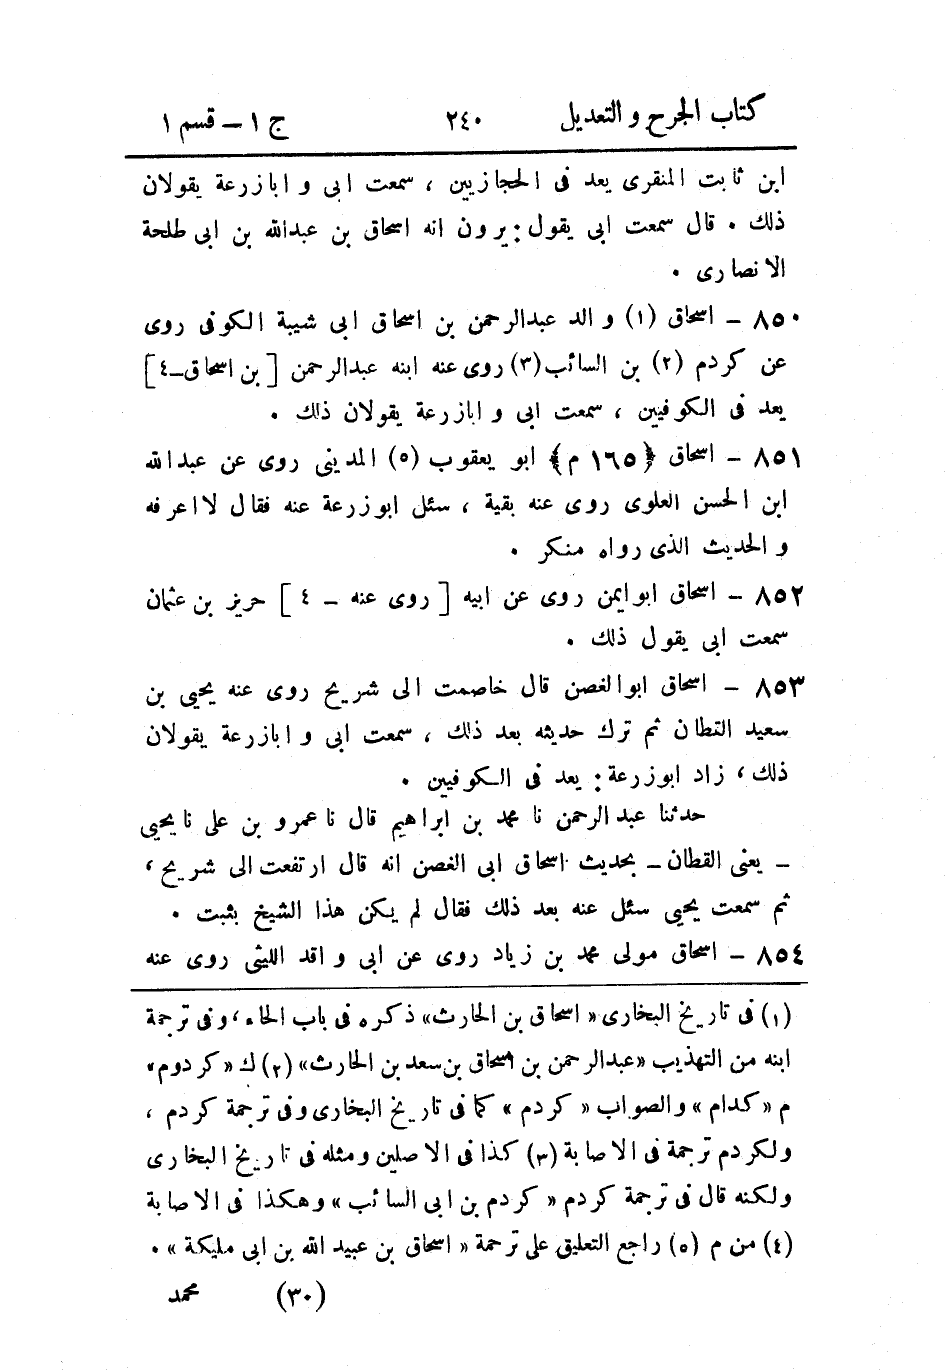 كتاب الجرح و التعديل ٢٤٠ ج ١ – قسم ١
ابن ثابت المنقرى يعد فى الحجازيين ، سمعت ابى و ابازرعة يقولان
ذلك . قال سمعت ابى يقول : يرون انه اسحاق بن عبدالله بن ابى طلحة
الانصارى .
٨٥٠ – اسحاق (١) والد عبدالرحمن بن اسحاق ابى شيبة الكوفى روى
عن كردم (٢) بن السائب(٣) روى عنه ابنه عبدالرحمن [ بن اسحاق–٤]
يعد فى الكوفيين ، سمعت ابى و ابازرعة يقولان ذلك .
٨٥١ – اسحاق ﴿١٦٥ م﴾ ابو يعقوب (٥) المدينى روى عن عبدالله
ابن الحسن العلوى روى عنه بقية ، سئل ابوزرعة عنه فقال لا اعرفه
و الحديث الذى رواه منكر .
٨٥٢ – اسحاق ابو ايمن روى عن ابيه [ روى عنه – ٤ ] حريز بن عثمان
سمعت ابى يقول ذلك .
٨٥٣ – اسحاق ابو الغصن قال خاصمت الى شريح روى عنه يحيى بن
سعيد القطان ثم ترك حديثه بعد ذلك ، سمعت ابى و ابازرعة يقولان
ذلك ، زاد ابوزرعة : يعد فى الكوفيين .
حدثنا عبد الرحمن نا محمد بن ابراهيم قال نا عمرو بن على نا يحيى
– يعنى القطان – بحديث اسحاق ابى الغصن انه قال ارتفعت الى شريح ،
ثم سمعت يحيى سئل عنه بعد ذلك فقال لم يكن هذا الشيخ بثبت .
٨٥٤ – اسحاق مولى محمد بن زياد روى عن ابى و اقد الليثى روى عنه
(١) فى تاريخ البخارى « اسحاق بن الحارث» ذكره فى باب الحاء ، وفى ترجمة
ابنه من التهذيب «عبدالرحمن بن اسحاق بن سعد بن الحارث» (٢) ك «كردوم»
م «كدام» والصواب «كردم» كما فى تاريخ البخارى وفى ترجمة كردم ،
ولكردم ترجمة فى الاصابة (٣) كذا فى الاصلين ومثله فى تاريخ البخارى
ولكنه قال فى ترجمة كردم « كردم بن ابى السائب » وهكذا فى الاصابة
(٤) من م (٥) راجع التعليق على ترجمة « اسحاق بن عبيد الله بن ابى مليكة » .
(٣٠) محمد